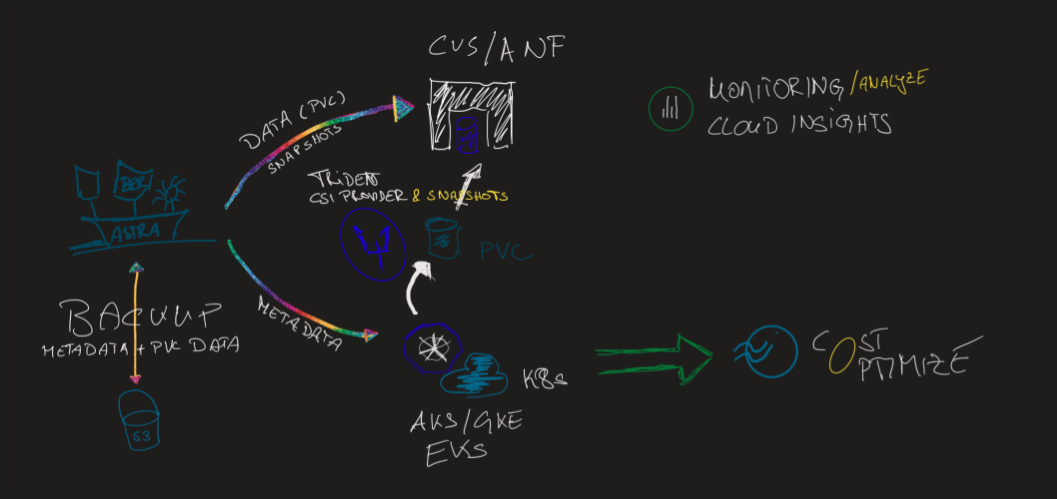 CVS/ANF
MONITORING/ANALYZE
CLOUD INSIGHTS
DATA (PVC)
SNAPSHOTS
TRIDENT
CSI PROVIDER & SNAPSHOTS
B&R
ASTRA
PVC
BACKUP
METADATA + PVC DATA
METADATA
S3
K8s
AKS/GKE
EKS
COST
OPTIMIZE